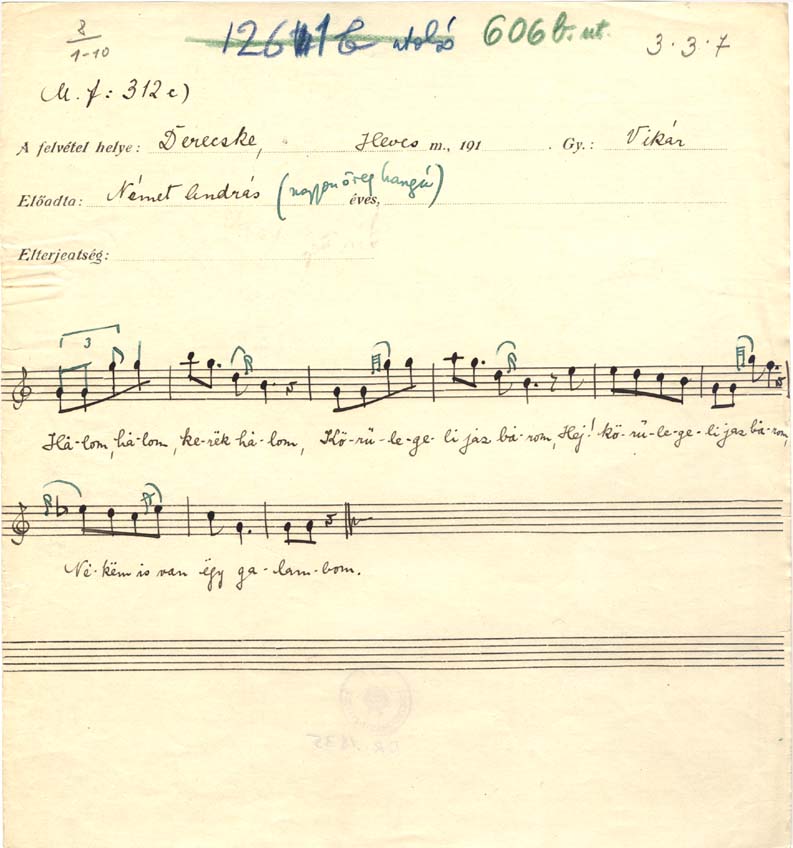 8
1-10
12611b utolsó 606b. ut. 3·3·7
M. f: 312 c)
A felvétel helye: Derecske, Heves m., 191 . Gy.: Vikár
Előadta: Német András (nagyon öreg hangú) éves,
Elterjedtség:
3
Há-lom, há-lom, ke-rëk há-lom, Kö-rű-le-ge-li jaz bá-rom, Hej! kö-rű-le-ge-li jaz bá-rom,
Né-këm is van ëgy ga-lam-bom.